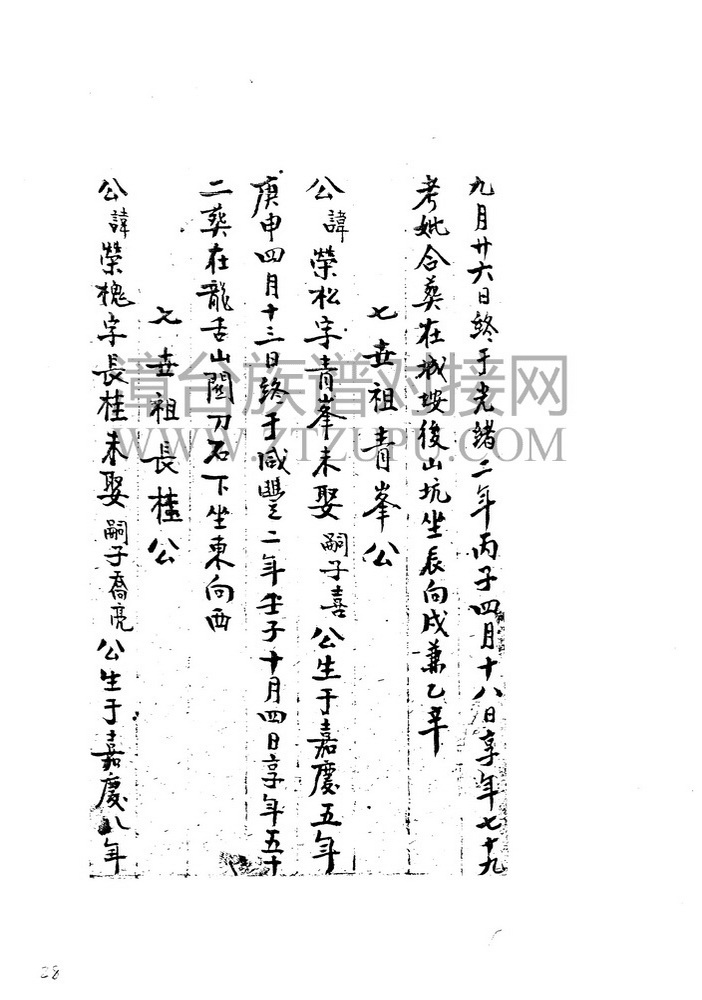 九月廿六日終于光緒二年丙子四月十八日享年七十九
考妣合葬在城坡後山坑坐辰向戌兼乙辛
七世祖青峯公
公諱榮松字青峯未娶嗣子喜公生于嘉慶五年
庚申四月十三日終于咸豐二年壬子十月四日享年五十
二葬在龍舌山關刀石下坐東向西
七世祖長桂公
公諱榮槐字長桂未娶嗣子喬亮公生于嘉慶八年
道台族谱对接网
WWW.ZTZUPU.COM
28